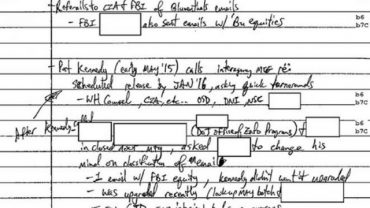 - Referrals to CIA & FBI of Blumenthal's emails
- FBI also sent emails w/ Bu equities
b6
b7C
- Pat Kennedy (early MAY '15) calls interagency MTG re:
scheduled release by JAN '16, asking quick turnarounds
- WH Counsel, CIA, etc.. OSD, DNI, NSC
b6
b7C
After Kennedy
(DoJ Office of Info Programs) &
in closed door mtg, asked to change his
mind on classification of email
b6
b7C
- 1 email w/ FBI equity, Kennedy didn't want it upgraded
- was upgraded recently (